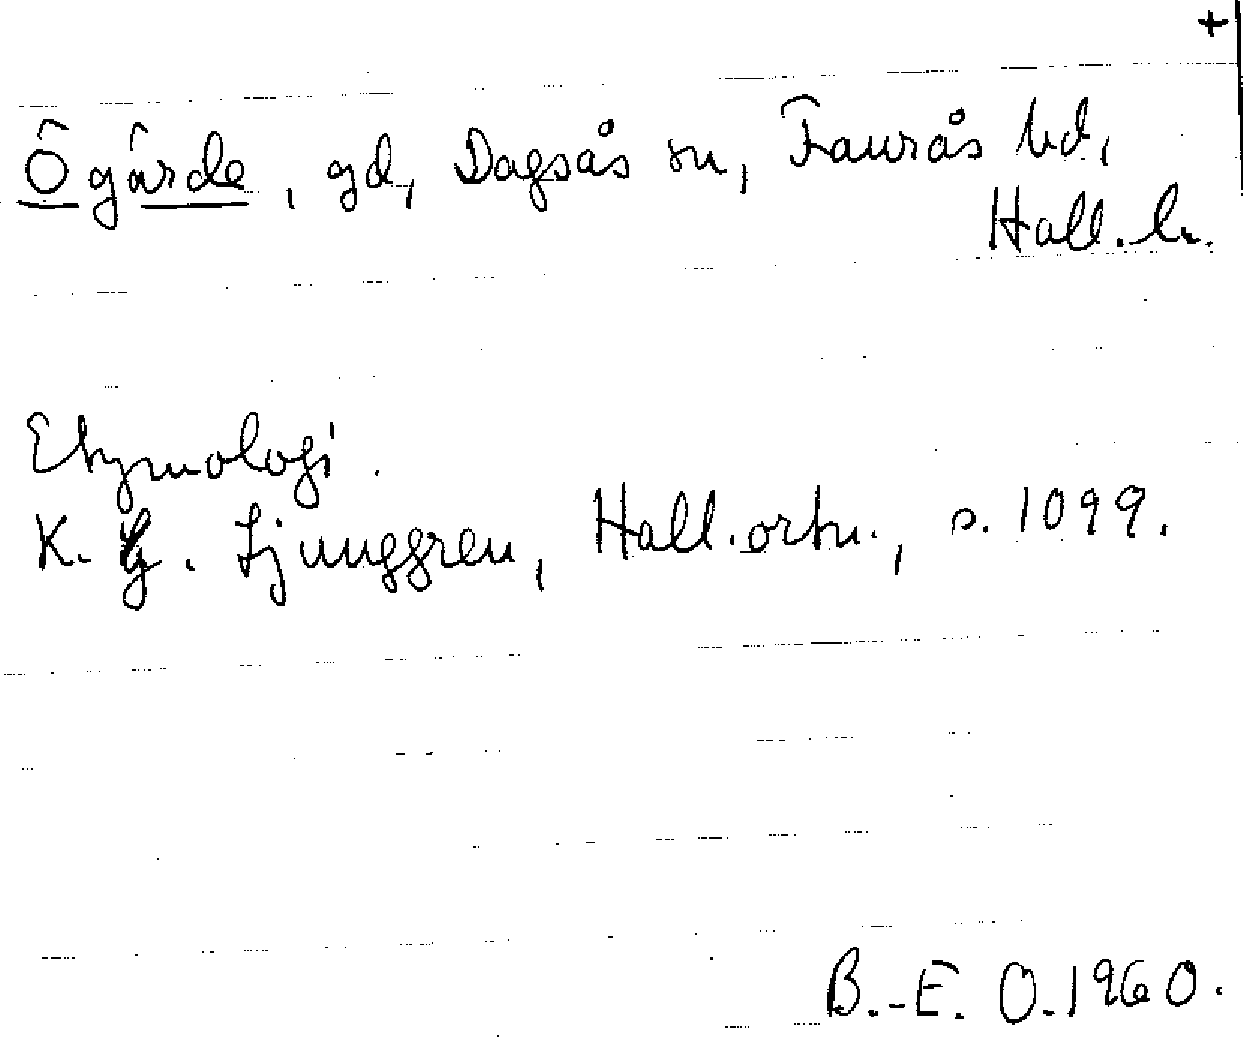 +
Ögärde, gd, Dagsås sn, Faurås hd,
Hall. l.
Etymologi.
K. G. Ljunggren, Hall. ortn., s. 1099.
B.-E. O. 1960.